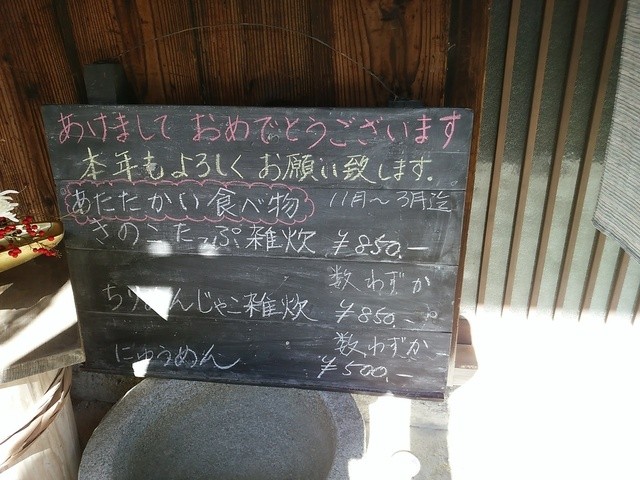 あけまして おめでとうございます
本年もよろしく お願い致します.
あたたかい食べ物 11月〜3月迄
きのこたっぷ雑炊 ¥850.-
数わずか
ちりめんじゃこ雑炊 ¥850.-
数わずか
にゅうめん ¥500.-